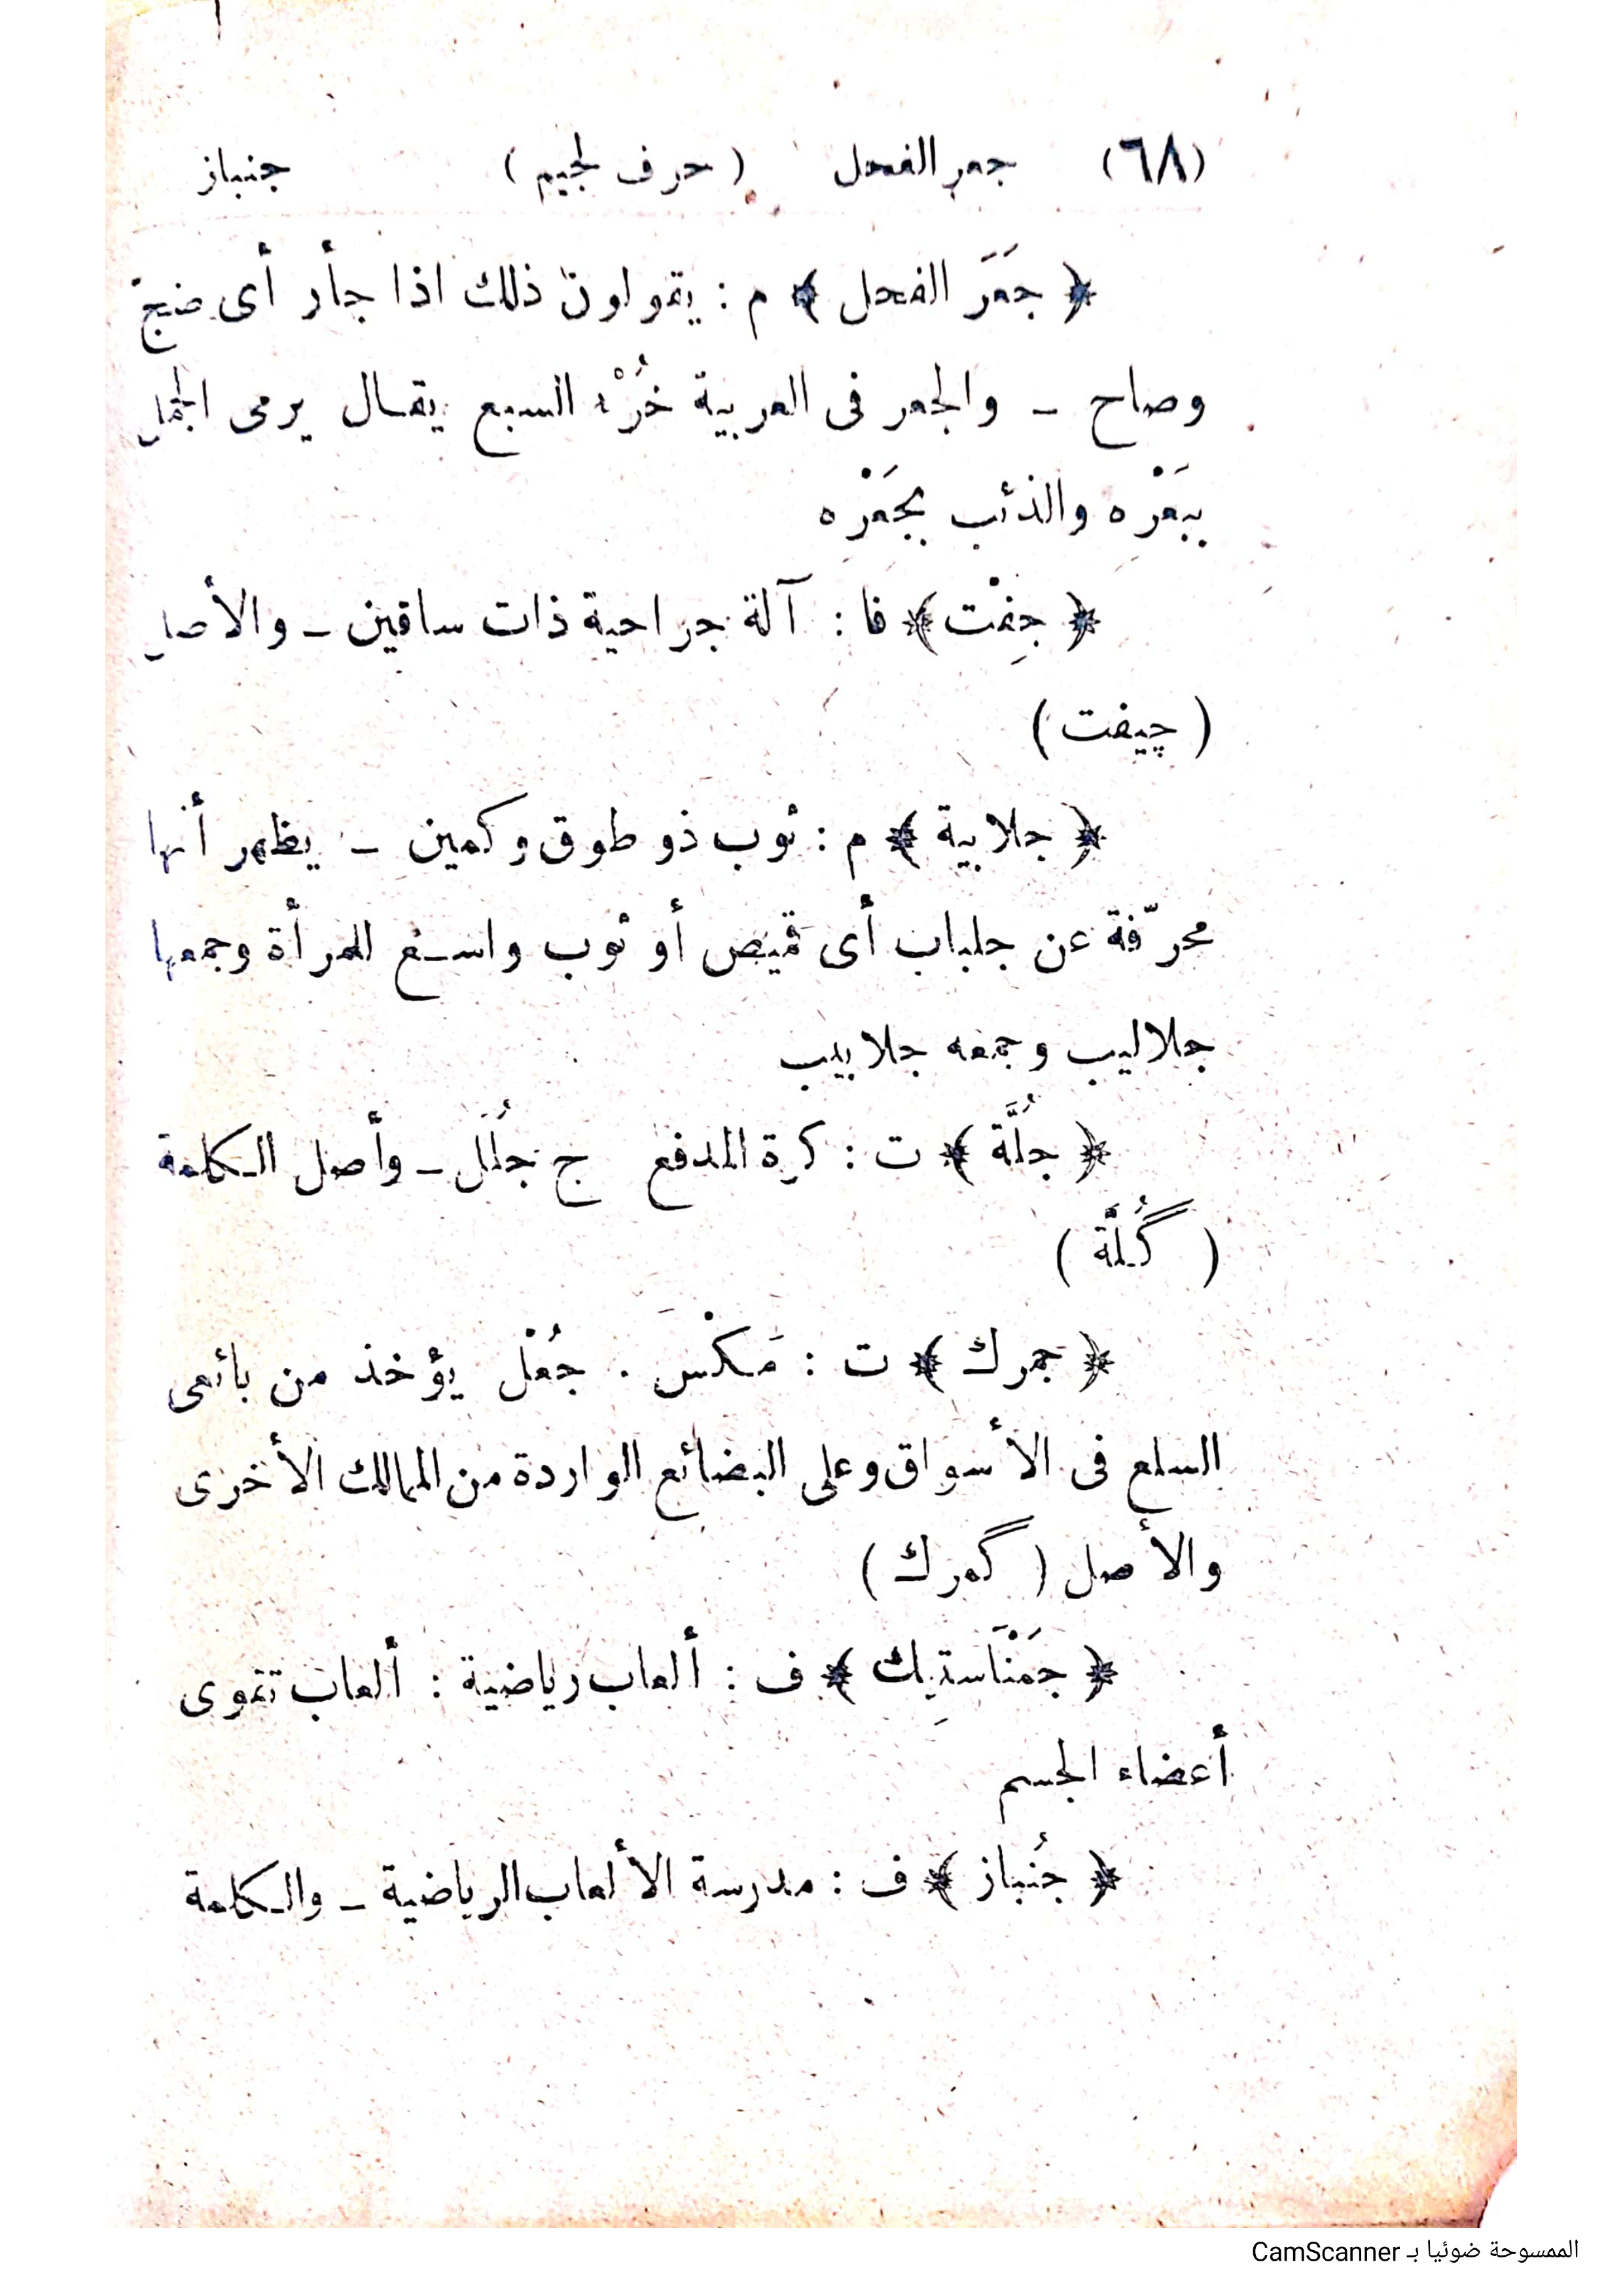 (٦٨) جعر الفحل ( حرف الجيم ) جنباز
﴿ جَعَرَ الفحل ﴾ م : يقولون ذلك اذا جأر أى ضجّ
وصاح – والجعر فى العربية خُرْء السبع يقال يرمى الجمل
بِبَعْرِه والذئب بِجَعْرِه
﴿ جِفْت ﴾ فا : آلة جراحية ذات ساقين – والأصل
( چيفت )
﴿ جلابية ﴾ م : ثوب ذو طوق وكمين – يظهر أنها
محرّفة عن جلباب أى قميص أو ثوب واسع للمرأة وجمعها
جلاليب وجمعه جلابيب
﴿ جُلَّة ﴾ ت : كرة المدفع ج جُلَل – وأصل الكلمة
( گُلَّة )
﴿ جمرك ﴾ ت : مَكْس . جُعْل يؤخذ من بائعى
السلع فى الأسواق وعلى البضائع الواردة من الممالك الأخرى
والأصل ( گمرك )
﴿ جَمْنَاستِيك ﴾ ف : ألعاب رياضية : ألعاب تقوى
أعضاء الجسم
﴿ جُنباز ﴾ ف : مدرسة الألعاب الرياضية – والكلمة
الممسوحة ضوئيا بـ CamScanner